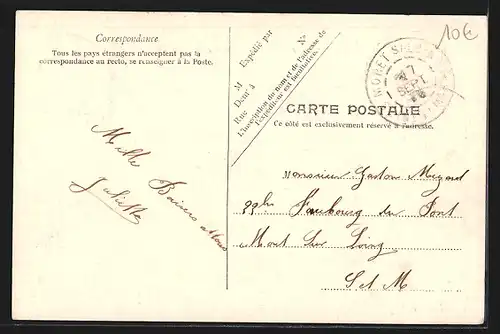 Correspondance
Tous les pays étrangers n'acceptent pas la
correspondance au recto, se renseigner à la Poste.
Mille
Baisers à tous
Juliette
Expédié par
M
Dem^t à
Rue
N°
L'inscription du nom et de l'adresse de
l'expéditeur est facultative.
10€
MORET
17
SEPT
CARTE POSTALE
Ce côté est exclusivement réservé à l'adresse.
Monsieur Gaston
Faubourg du Pont
Mont sur Loing
S et M